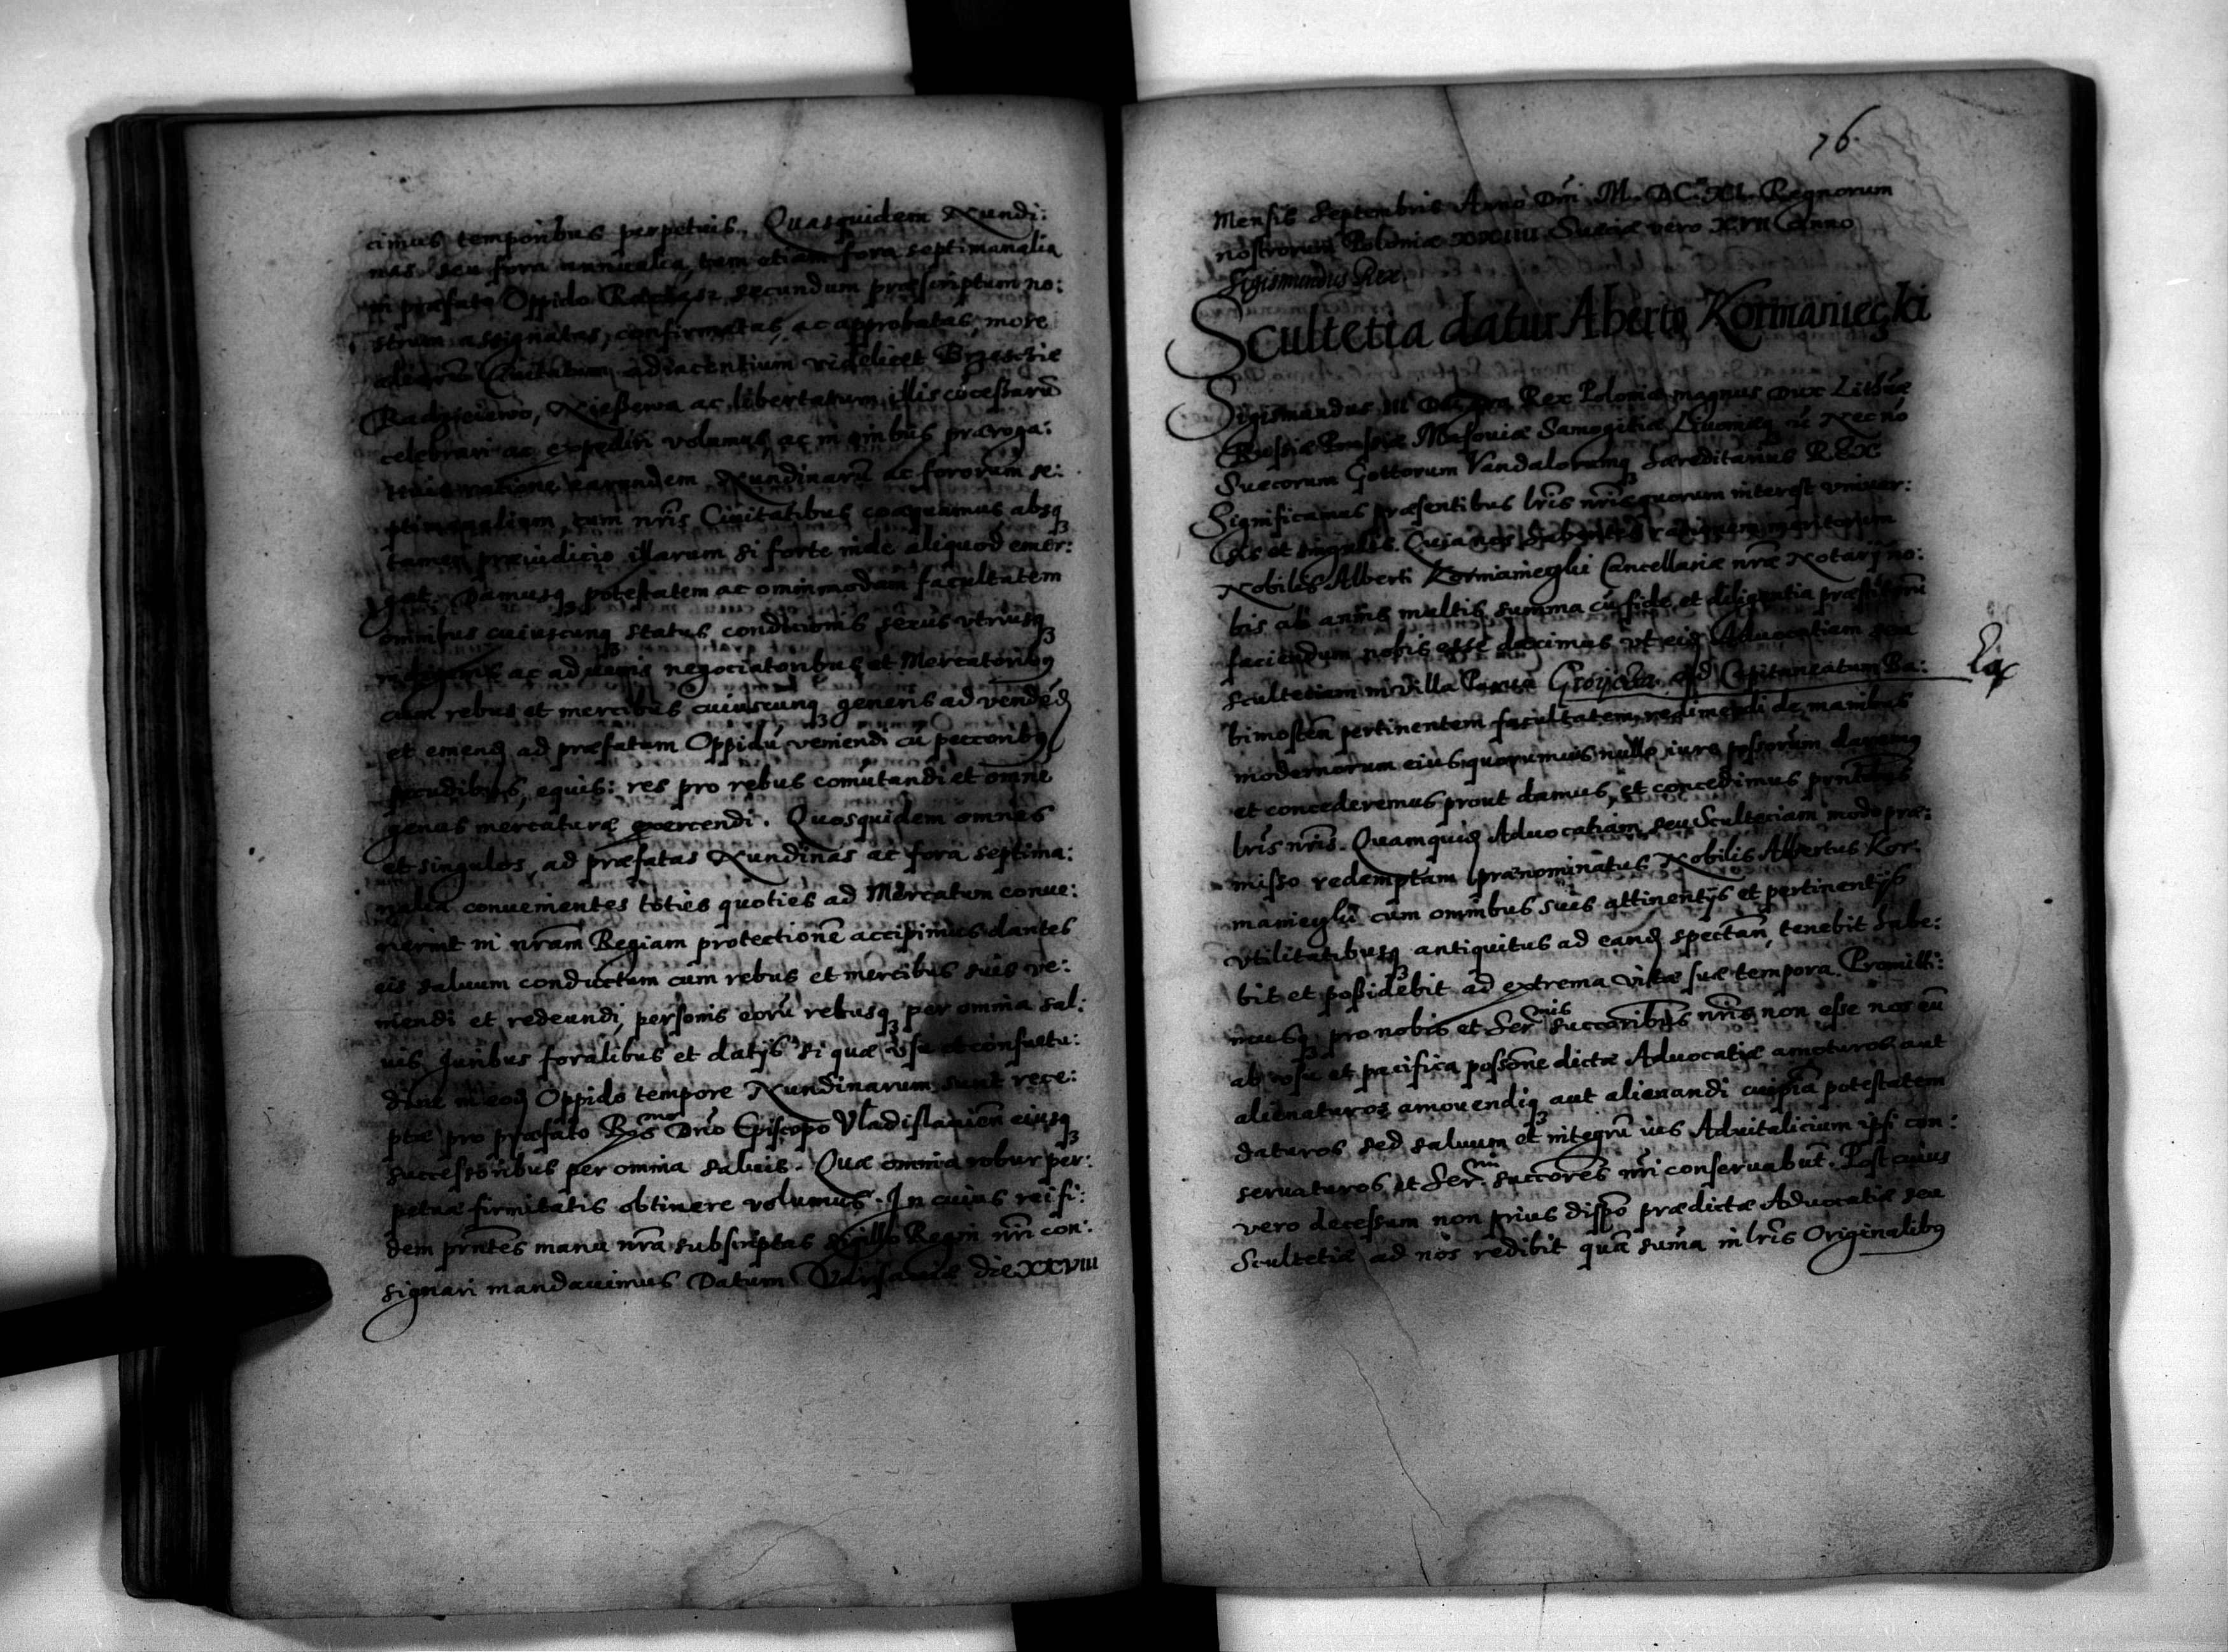 cimus temporibus perpetuis, Quasquidem Nundi:
nas seu fora annualia, tam etiam fora septimanalia
in præfato Oppido secundum præscriptum no:
strum assignatas, confirmatas, ac approbatas, more
aliarū Ciuitatum adiacentium videlicet Brzesciæ
Radzieiewo, Nießewa ac libertatum illis cōceßarū
celebrari ac expediri volumus, ac in oīnibus præroga:
tiuis ratione earundem Nundinarū ac fororum se:
ptimanalium, cum nrīs Ciuitatibus coæquamus absq3
tamen præiudicio illarum si forte inde aliquod emer:
gat. Damusq3 potestatem ac omnimodam facultatem
omnibus cuiuscunq3 status, conditionis sexus vtriusq3
indigenis ac aduenis negociatoribus et Mercatoribg
cum rebus et mercibus cuiuscunq3 generis ad vendēd
et emend ad præfatum Oppidū veniendi cū peccoribg
pecudibus, equis: res pro rebus comutandi et omne
genus mercaturæ exercendi. Quosquidem omnes
et singulos, ad præfatas Nundinas ac fora septima:
nalia conuenientes toties quoties ad Mercatum conue:
nerint in nrām Regiam protectionē accipimus dantes
eis saluum conductum cum rebus et mercibus suis ve:
niendi et redeundi, personis eorū rebusq3 per omnia sal:
uis Juribus foralibus et datijs si quæ vsu et consuetu:
dine in eod Oppido tempore Nundinarum sunt rece:
ptæ pro præfato Rndo Dno Episcopo Vladislauien eiusq3
successoribus per omnia saluis. Quæ omnia robur per:
petuæ firmitatis obtinere volumus. In cuius rei fi:
dem prntēs manu nrā subscriptas sigillo Regni nrī con:
signari mandauimus Datum Varsauiæ die XXVIII
76.
Mensis Septembris Anno Dnī M. DC. XI. Regnorum
nostrorum Poloniæ XXIIII Sueciæ vero XVII Anno
Sigismundus Rex
Scultetia datur Alberto Kormanieczki
Sigismundus III Dei gra Rex Poloniæ magnus Dux Lithuæ
Russiæ Prussiæ Masouiæ Samogitiæ Liuoniæq3 Necnō
Suecorum Gottorum Vandalorumq3 hæreditarius REX
Significamus præsentibus lrīs nrīs quorum interest vniuer:
sis et singulis. Quia nos habentes rationem meritorum
Nobilis Alberti Kormanieczki Cancellariæ nræ Notarij no:
bis ab annis multis summa cū fide, et diligentia præstitorū
faciendum nobis esse duximus vt eid Aduocatiam seu
scultetiam in villa Groijcza ad Capitaneatum Ba:
bimosten pertinentem facultatem redimendi de manibus
modernorum eius quorumuis nullo iure possorum daremg
et concederemus prout damus, et concedimus prntibus
lrīs nrīs. Quamquid Aduocatiam seu Scultetiam modo præ:
misso redemptam prænominatus Nobilis Albertus Kor:
manieczki cum omnibus suis attinentijs et pertinentijs
vtilitatibusq3 antiquitus ad eand spectan, tenebit habe:
bit et poßidebit ad extrema vitæ suæ tempora. Promitti:
musq3 pro nobis et Sermis succoribus nrīs non esse nos eū
ab vsu et pacifica possone dictæ Aduocatiæ amoturos aut
alienaturos amouendiq3 aut alienandi cuipiā potestatem
daturos sed saluum et integrū ius Aduitalicium ipsi con:
seruaturos et Sermi succores nrī conseruabūt. Post cuius
vero decessum non prius dispō prædictæ Aduocatiæ seu
Scultetiæ ad nos redibit quā suma in lrīs Originalibg